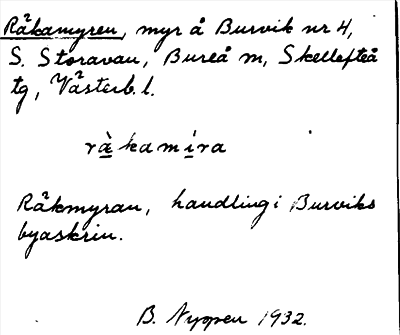 Råkamyren, myr å Burvik nr 4,
S. Storavan, Bureå sn, Skellefteå
tg, Västerb. l.
rà̱kamí̱ra
Råkmyran, handling i Burviks
byaskrin.
B. Nyppen 1932.